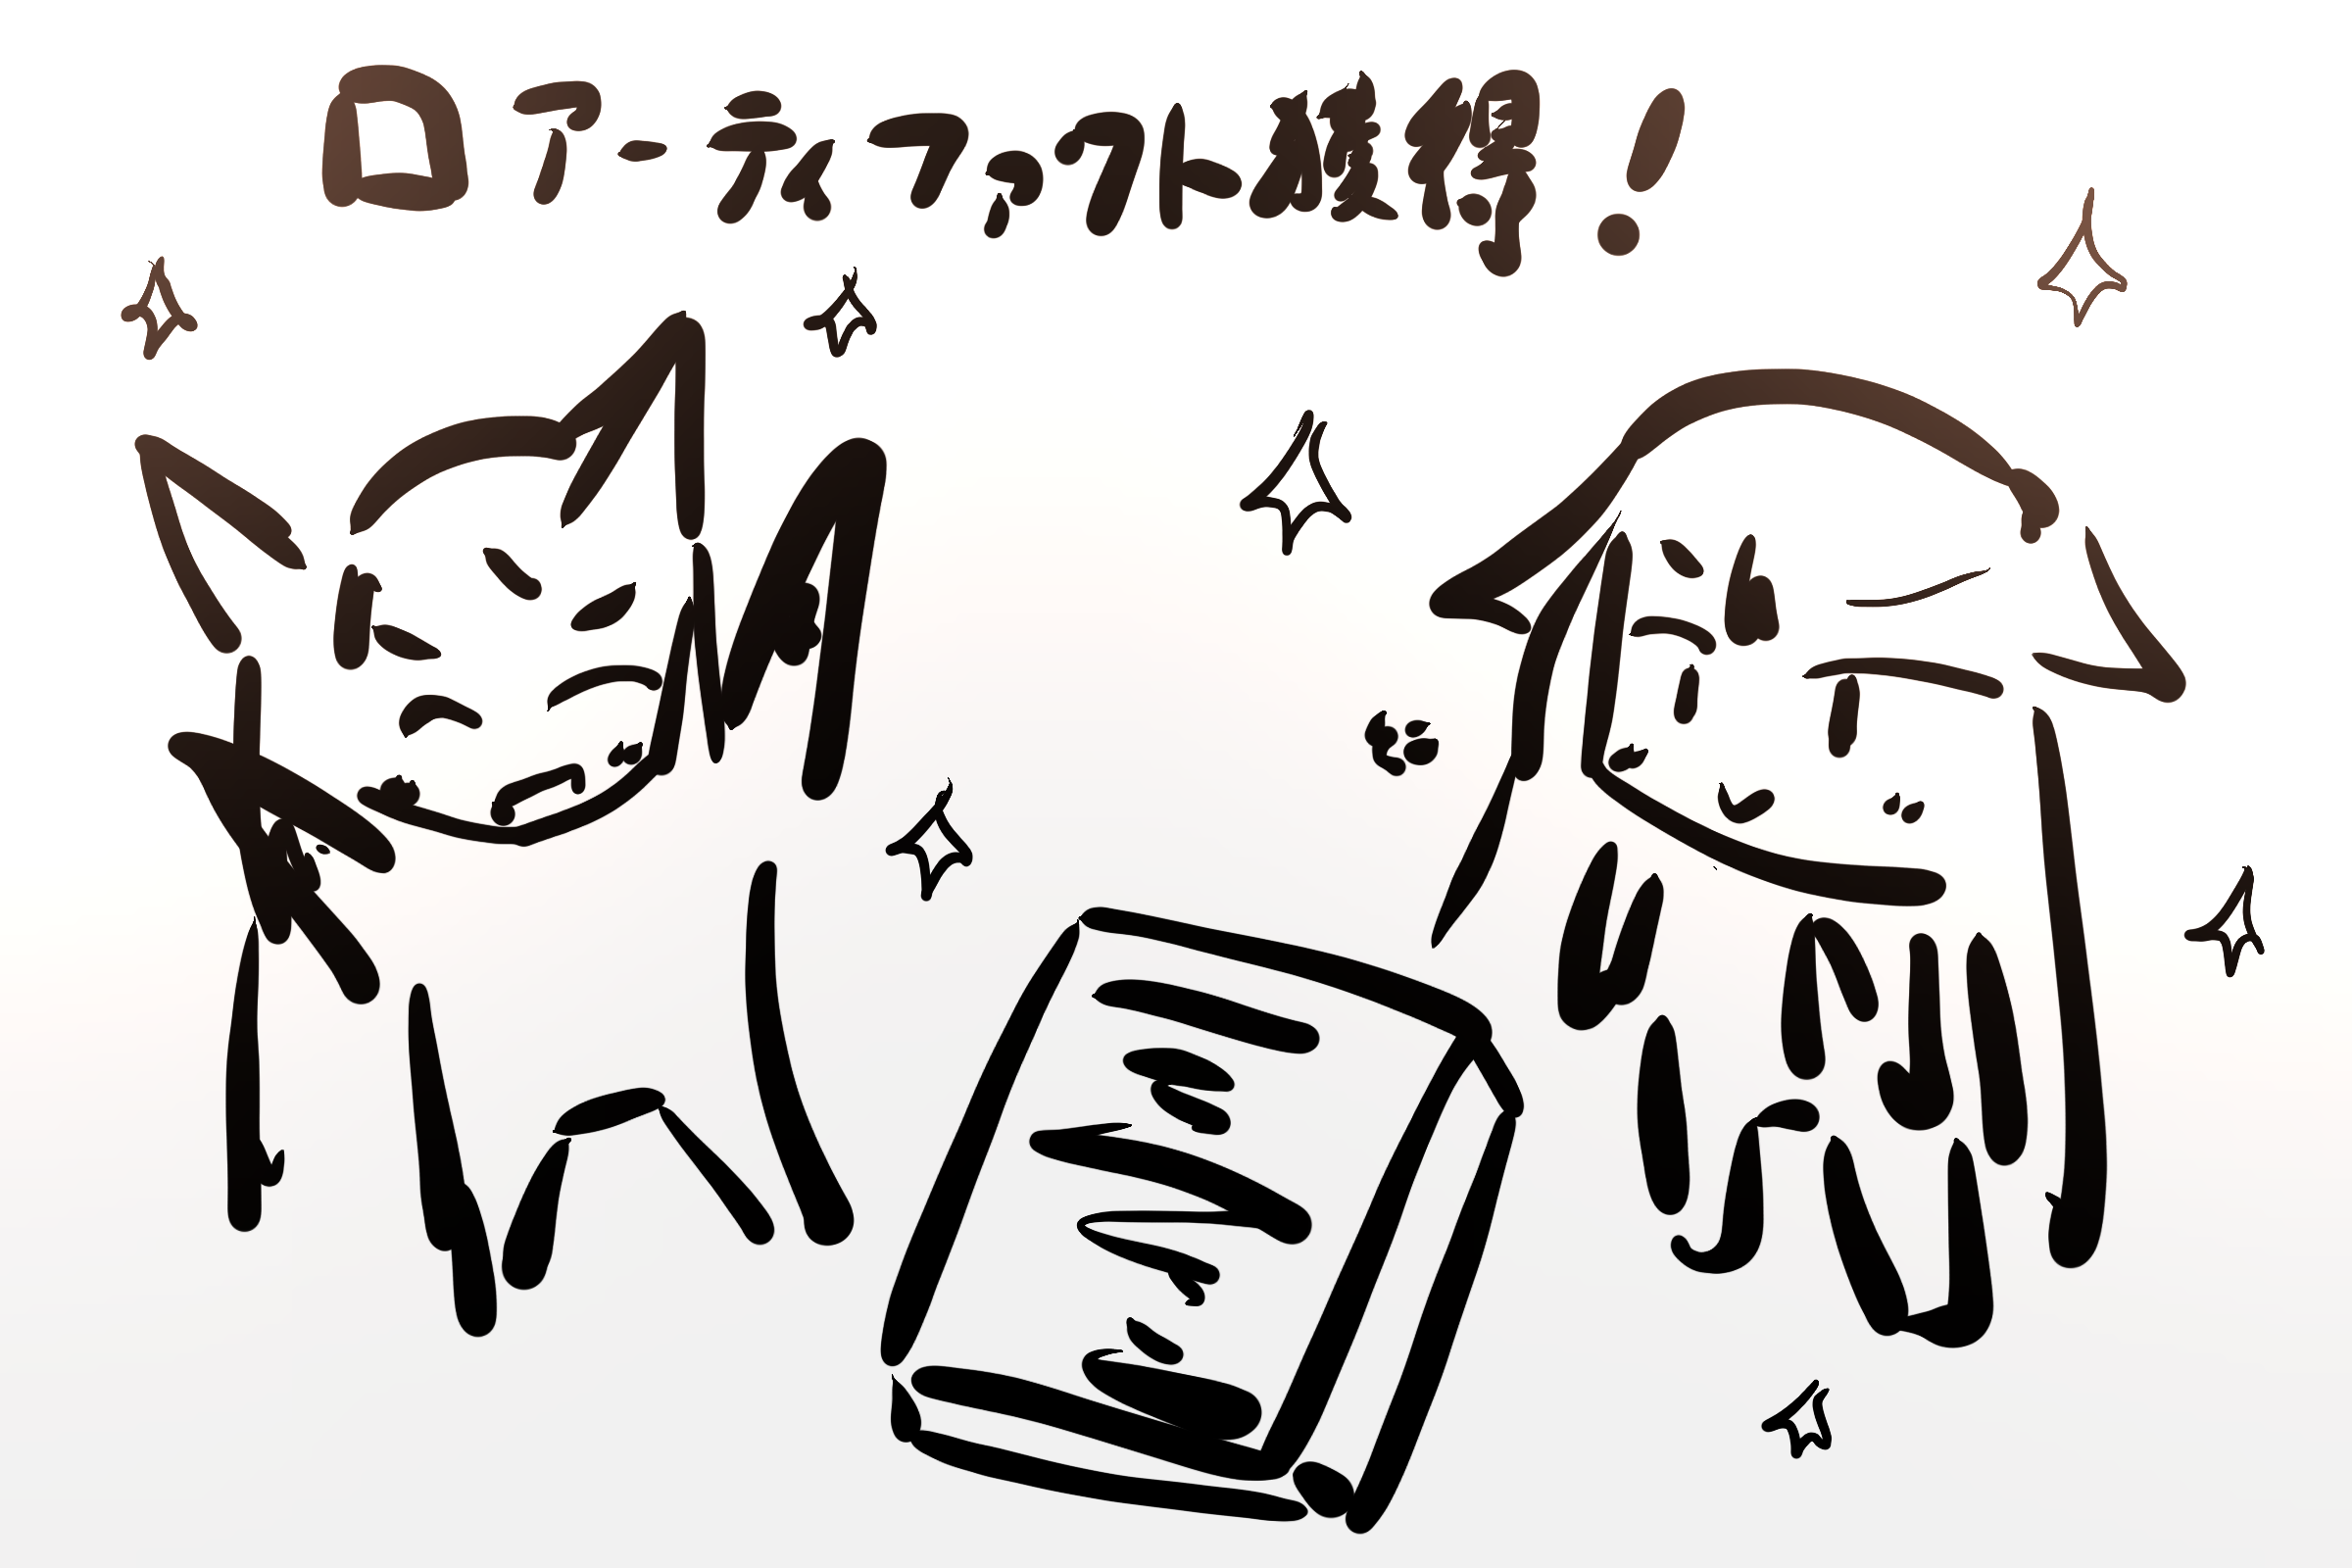 ロアーティファクト獲得！